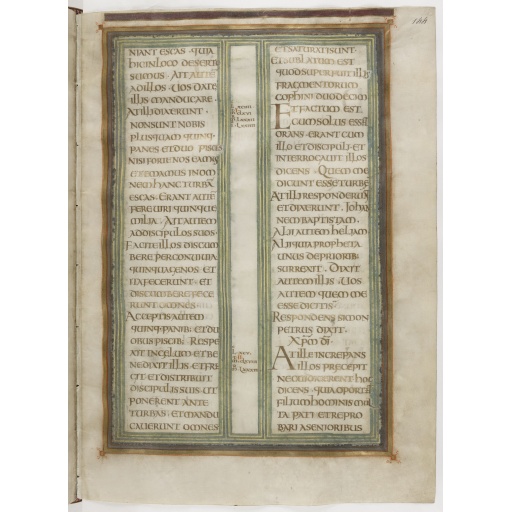 NIANT ESCAS · QUIA
HIC IN LOCO DESERTO
SUMUS · AIT AUTEM
AD ILLOS · UOS DATE
ILLIS MANDUCARE ·
AT ILLI DIXERUNT ·
NON SUNT NOBIS
PLUS QUAM QUINQ:
PANES ET DUO PISCES
NISI FORTE NOS EAMUS
ET EMAMUS IN OMNEM
HANC TURBAM
ESCAS · ERANT AUTEM
FERE UIRI QUINQUE
MILIA · AIT AUTEM
AD DISCIPULOS SUOS ·
FACITE ILLOS DISCUM
BERE PER CONUIUIA
QUINQUAGENOS · ET
ITA FECERUNT · ET
DISCUMBERE FECE
RUNT OMNES ·
ACCEPTIS AUTEM
QUINQ: PANIB: ET DU
OBUS PISCIB: RESPE
XIT IN CELUM ET BE
NEDIXIT ILLIS · ET FRE
GIT ET DISTRIBUIT
DISCIPULIS SUIS · UT
PONERENT ANTE
TURBAS · ET MANDU
CAUERUNT OMNES
166
ET SATURATI SUNT ·
ET SUBLATUM EST
QUOD SUPERFUIT ILLIS
FRAGMENTORUM
COPHINI DUODECIM
ET FACTUM EST
CUM SOLUS ESSET
ORANS · ERANT CUM
ILLO ET DISCIPULI · ET
INTERROGAUIT ILLOS
DICENS · QUEM ME
DICUNT ESSE TURBE
AT ILLI RESPONDERUNT
ET DIXERUNT · IOHAN
NEM BAPTISTAM ·
ALII AUTEM HELIAM ·
ALII QUIA PROPHETA
UNUS DE PRIORIB:
SURREXIT · DIXIT
AUTEM ILLIS · UOS
AUTEM QUEM ME
ESSE DICITIS ·
RESPONDENS SIMON
PETRUS DIXIT ·
XPM DI ·
AT ILLE INCREPANS
ILLOS PRECEPIT
NE CUI DICERENT HOC
DICENS · QUIA OPORTET
FILIUM HOMINIS MUL
TA PATI ET REPRO
BARI A SENIORIBUS